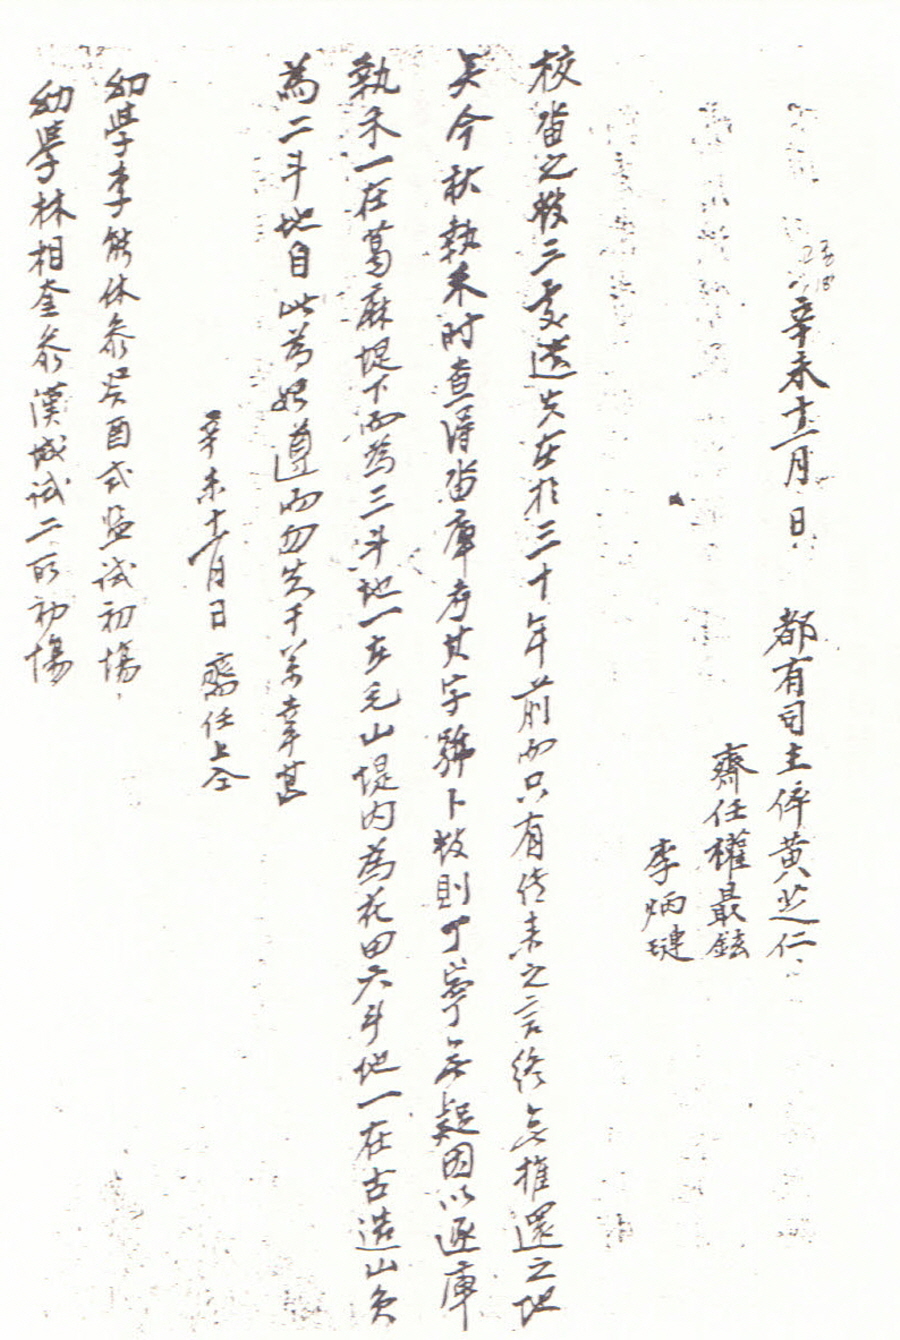 辛未十二月 日 都有司主倅黃芝仁
齋任權最鉉
李炳璉
校畓之數三處遺失在於三十年前而只有傳来之言終無推還之地
矣今秋執禾时查淂畓庫考其字號卜數則丁寧無疑因以逐庫
執禾一在葛麻堤下而為三斗地一在元山堤内為花田六斗地一在古造山負
為二斗地自此為始遵而勿失千萬幸甚
辛未十一月日 齋任上仝
幼學李能休叅癸酉式監試初場
幼學林相奎叅漢城試二所初場